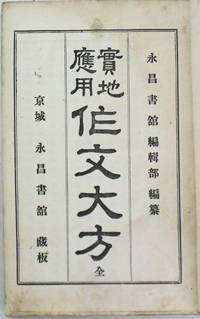 永昌書館編輯部 編纂
實地應用
作文大方 全
京城 永昌書館 藏板